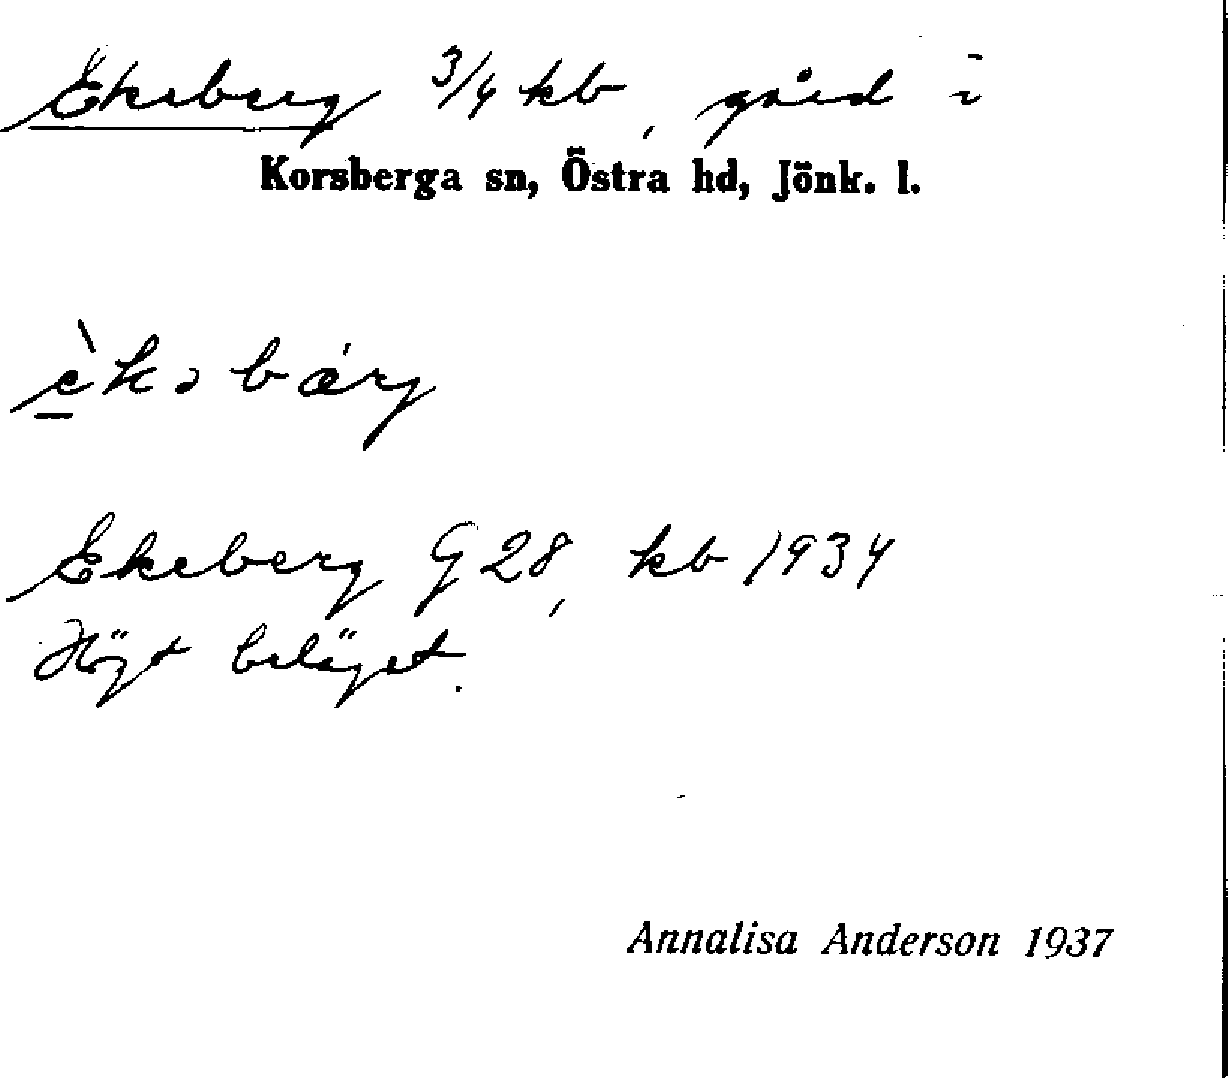 Ekeberg 3/4 kb, gård i
Korsberga sn, Östra hd, Jönk. l.
è̱kəbærj
Ekeberg G 28, kb 1934
Högt beläget.
Annalisa Anderson 1937